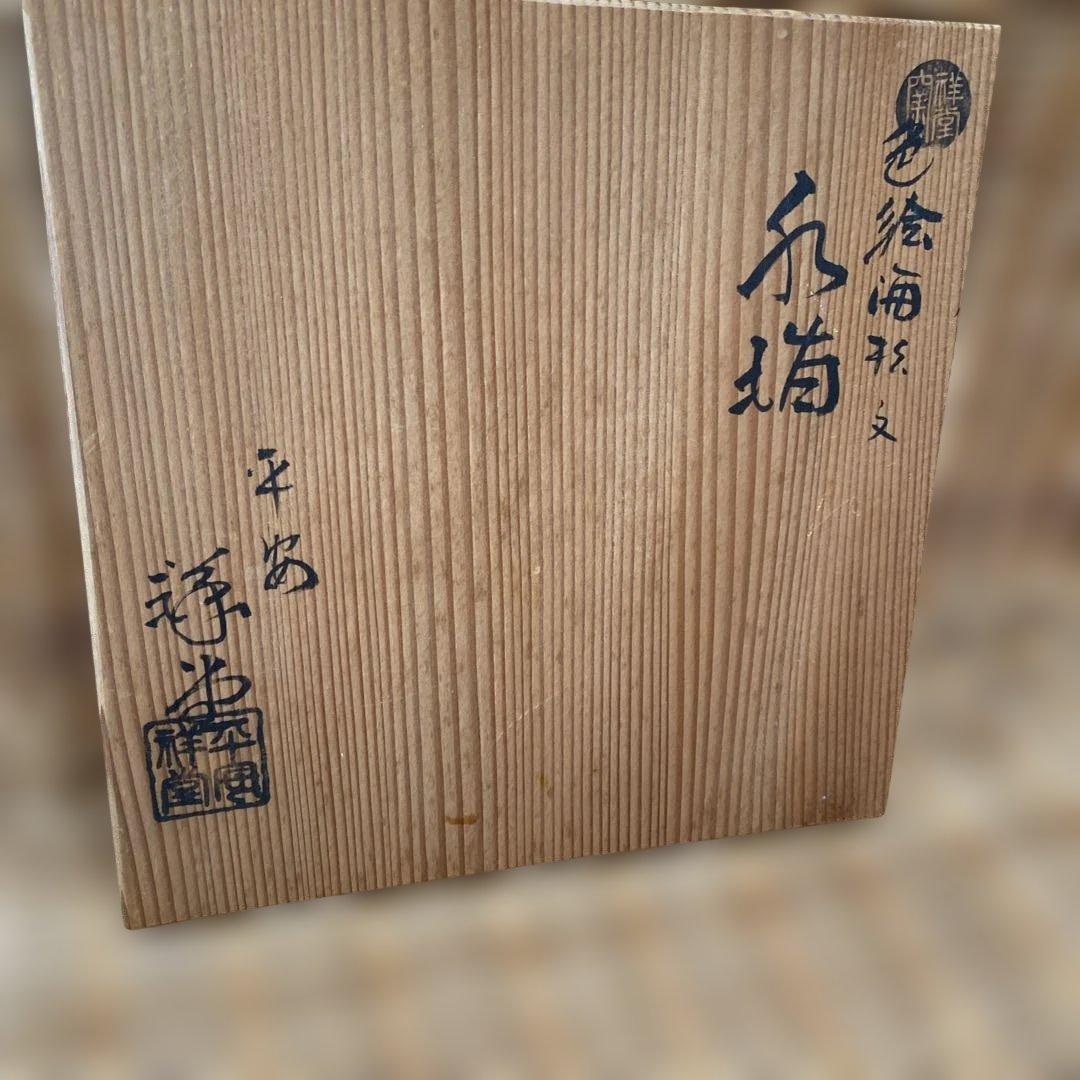 祥堂窯
色絵海形文
水指
平安
祥堂
平安祥堂